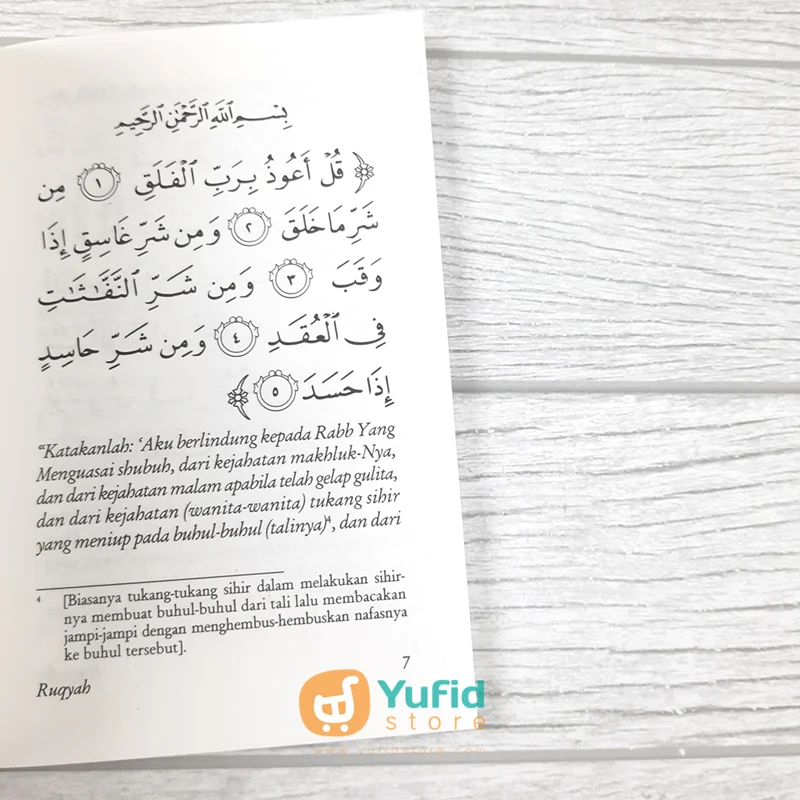 بِسْمِ اللَّهِ الرَّحْمَٰنِ الرَّحِيمِ
﴿ قُلْ أَعُوذُ بِرَبِّ الْفَلَقِ ١ مِن
شَرِّ مَا خَلَقَ ٢ وَمِن شَرِّ غَاسِقٍ إِذَا
وَقَبَ ٣ وَمِن شَرِّ النَّفَّـٰثَـٰتِ
فِي الْعُقَدِ ٤ وَمِن شَرِّ حَاسِدٍ
إِذَا حَسَدَ ٥ ﴾
“Katakanlah: ‘Aku berlindung kepada Rabb Yang
Menguasai shubuh, dari kejahatan makhluk-Nya,
dan dari kejahatan malam apabila telah gelap gulita,
dan dari kejahatan (wanita-wanita) tukang sihir
yang meniup pada buhul-buhul (talinya)⁴, dan dari
4 [Biasanya tukang-tukang sihir dalam melakukan sihir-
nya membuat buhul-buhul dari tali lalu membacakan
jampi-jampi dengan menghembus-hembuskan nafasnya
ke buhul tersebut].
7
Ruqyah
Yufid
store
www.yufidstore.com